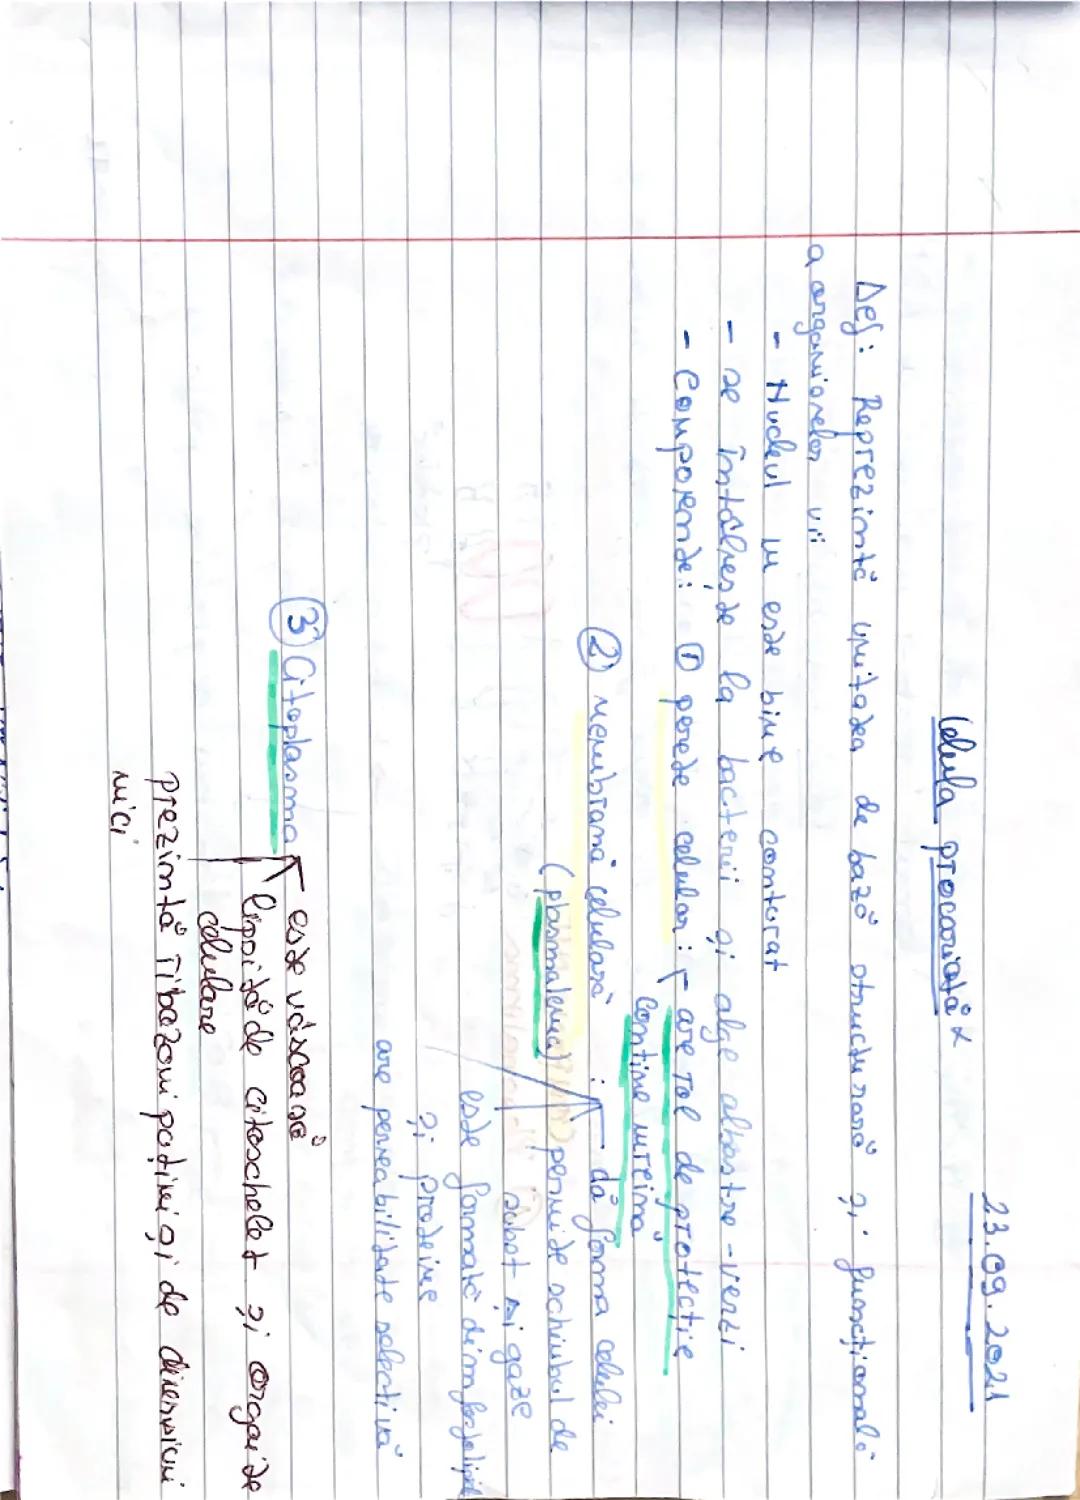 23.09.2021
Celula procariotă
Def: Reprezintă unitatea de bază structurară și funcțională
a organismelor vii
- Nucleul nu este bine conturat
- se întâlnește la bacterii și alge albastre-verzi
- Componente: ① perete celular: - are rol de protecție
conține mureină
② membrană celulară : - dă forma celulei
(plasmalema) permite schimbul de
subst și gaze
este formată din fosfolipide
și proteine
are permeabilitate selectivă
③ Citoplasma este vâscoasă
lipsită de citoschelet și organite
celulare
prezintă ribozomi puțini și de dimensiuni
mici